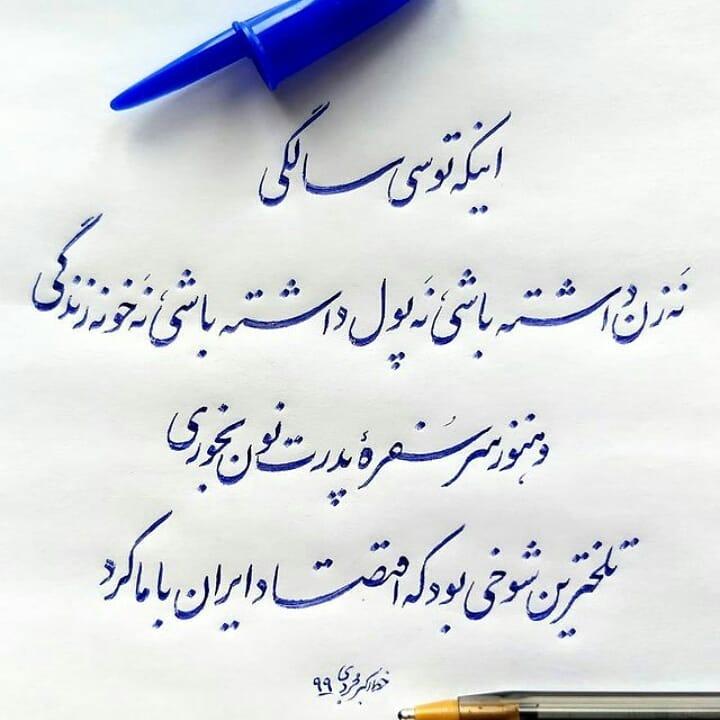 اینکه تو سی سالگی
نَه زن داشته باشی، نَه پول داشته باشی، نَه خونه زندگی
و هنوز سر سُفرهٔ پدرت نون بخوری
تلخترین شوخی بود که اقتصاد ایران با ما کرد
خط اکبر ۹۹